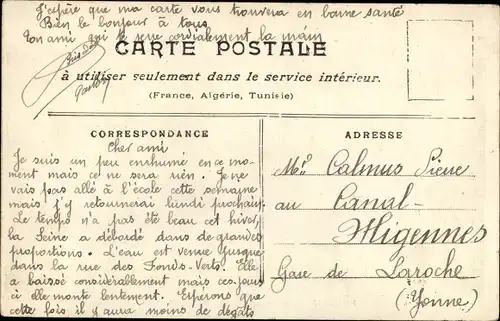 J'espère que ma carte vous trouvera en bonne santé
Bien le bonjour à tous
Ton ami qui te serre cordialement la main
CARTE POSTALE
à utiliser seulement dans le service intérieur.
(France, Algérie, Tunisie)
Gaston
CORRESPONDANCE
Cher ami
Je suis un peu enrhumé en ce mo-
ment mais ce ne sera rien. Je ne
vais pas allé à l'école cette semaine
mais j'y retournerai lundi prochain.
Le temps n'a pas été beau cet hiver,
la Seine a débordé dans de grandes
proportions. L'eau est venue jusque
dans la rue des Fonds-Verts. Elle
a baissé considérablement mais ces jours
ci elle monte lentement. Espérons que
cette fois il y aura moins de dégâts
ADRESSE
Calmus Pierre
au Canal-
Migennes
Gare de Laroche
(Yonne)